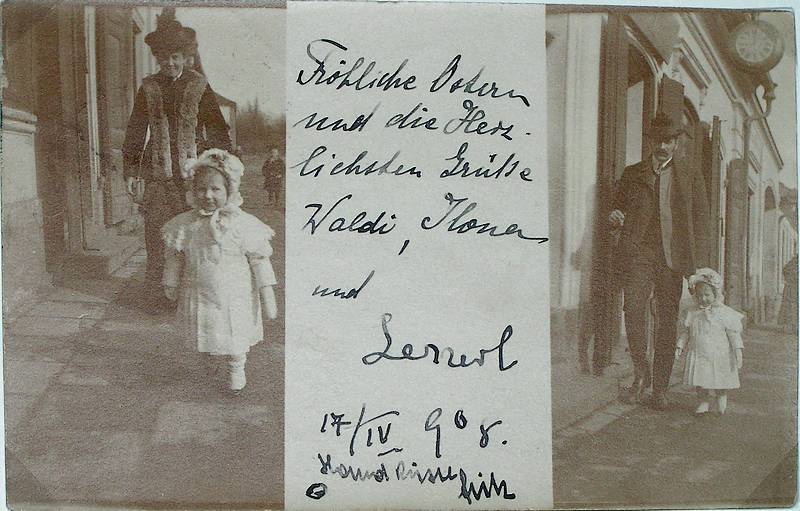 Fröhliche Ostern
und die Herz-
lichsten Grüße
Waldi, Ilona
und
Lennerl
17/IV 908.
Handküsse Fritz